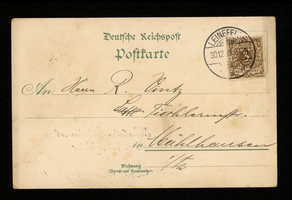 Deutsche Reichspost
Postkarte
LEINEFEL
30.12
3
An Herrn R.
Tischlermstr.
in Mühlhausen
i/Th
Wohnung
(Straße und Hausnummer)